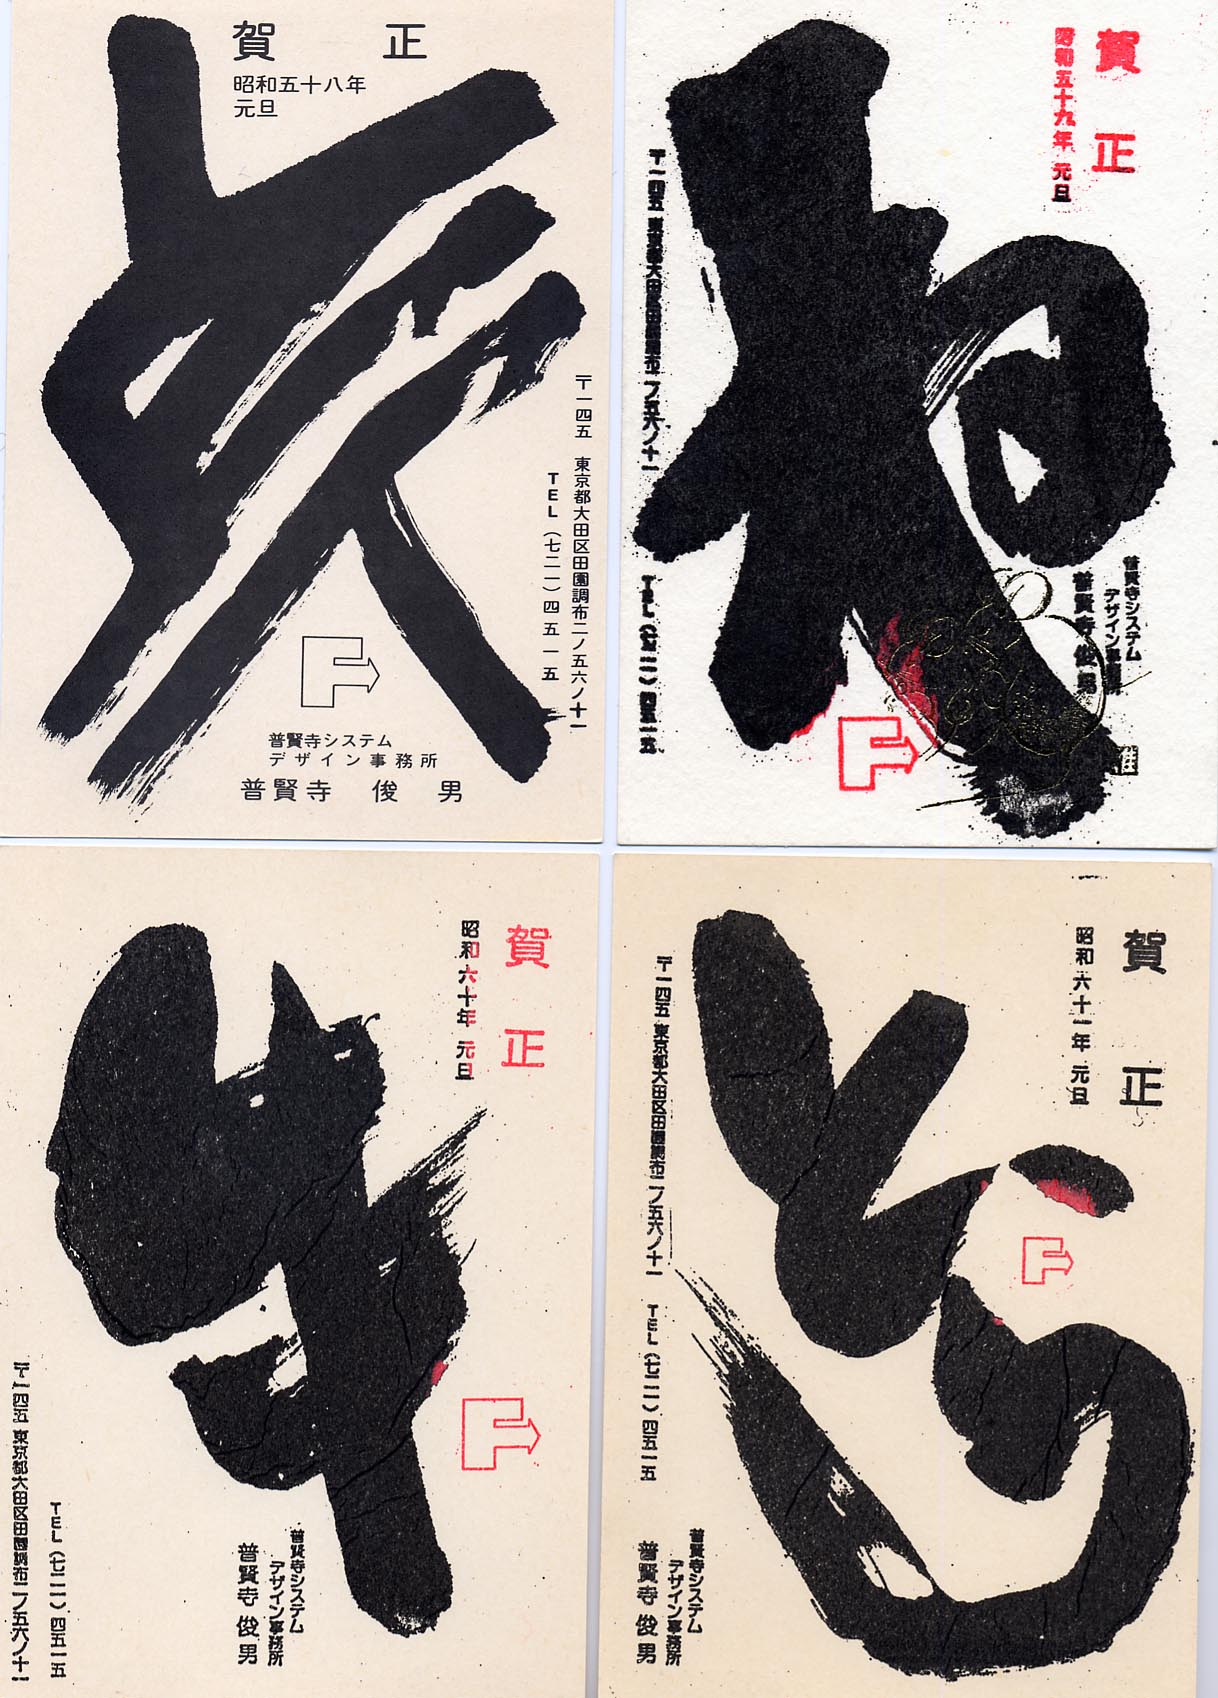 賀 正
昭和五十八年
元旦
亥
〒一四五 東京都大田区田園調布二ノ五六ノ十一
TEL(七二一)四五一五
普賢寺システム
デザイン事務所
普賢寺 俊 男
賀 正
昭和五十九年 元旦
ね
普賢寺システム
デザイン事務所
普賢寺 俊 男
〒一四五 東京都大田区田園調布二ノ五六ノ十一
TEL(七二一)四五一五
賀 正
昭和六十年 元旦
牛
普賢寺システム
デザイン事務所
普賢寺 俊 男
TEL(七二一)四五一五
〒一四五 東京都大田区田園調布二ノ五六ノ十一
賀 正
昭和六十一年 元旦
とら
〒一四五 東京都大田区田園調布二ノ五六ノ十一 TEL(七二一)四五一五
普賢寺システム
デザイン事務所
普賢寺 俊 男